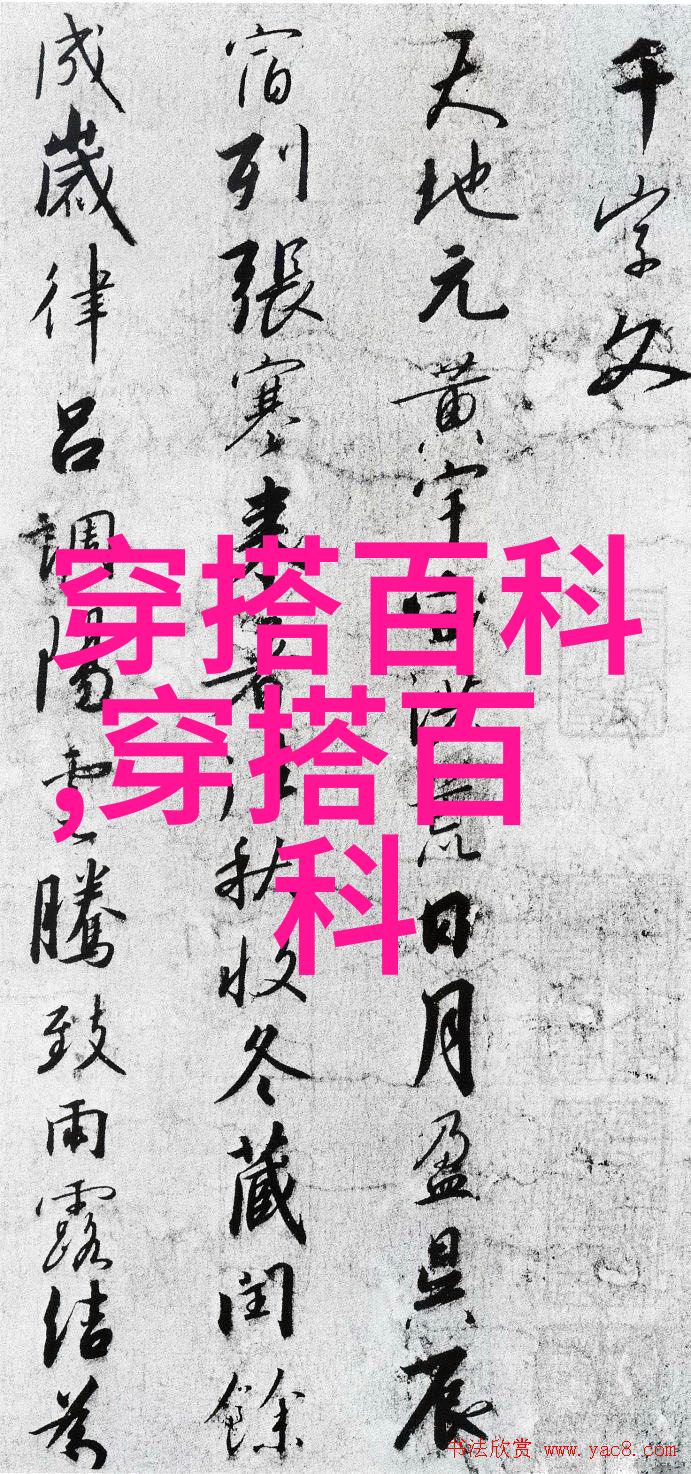 千字文
天地元黄宇宙洪荒日月盈昃辰
宿列張寒来暑往秋收冬藏閏餘
成歲律呂調陽雲騰致雨露結為
穿搭百科
,穿搭百
科
书法欣赏 www.yac8.com